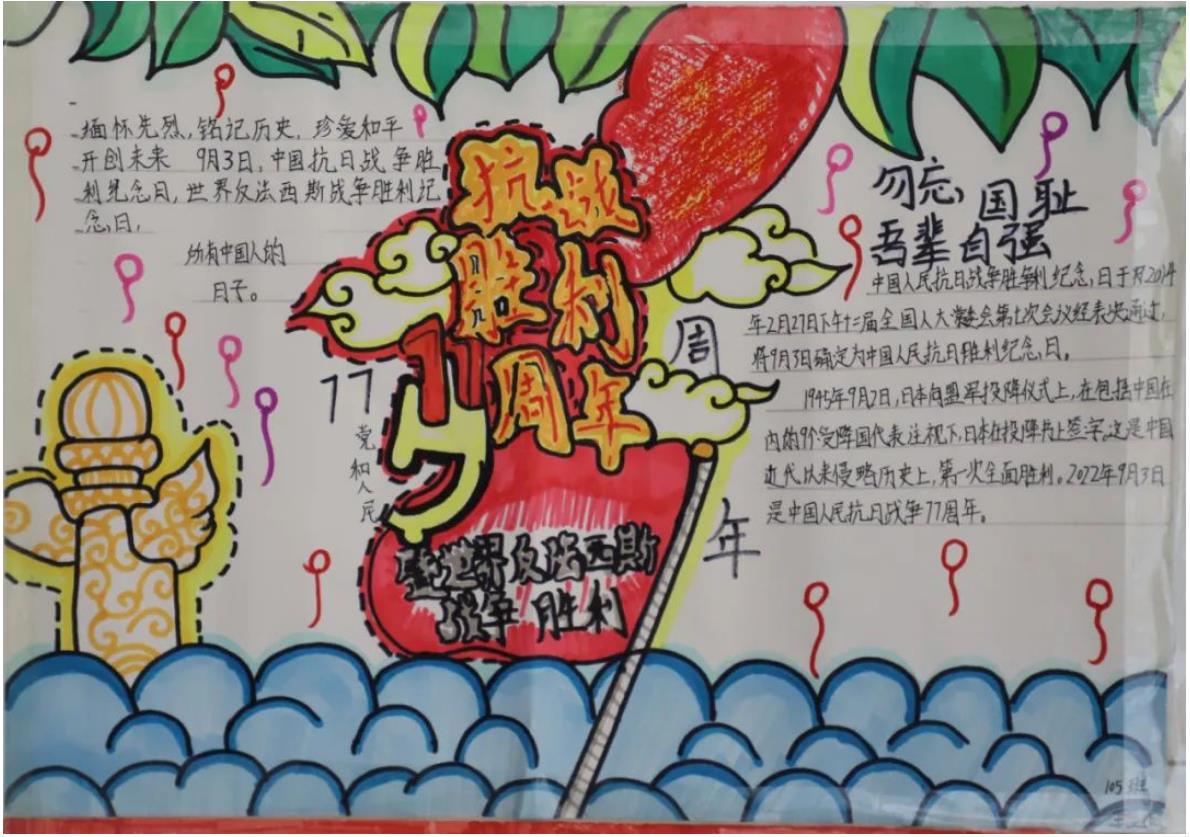 缅怀先烈,铭记历史,珍爱和平
开创未来 9月3日,中国抗日战争胜
利纪念日,世界反法西斯战争胜利记
念日,
所有中国人的
日子。
抗战
胜利
77
周年
周
年
党和人民
暨世界反法西斯
战争胜利
勿忘国耻
吾辈自强
中国人民抗日战争胜利纪念日于 2014
年2月27日下午十二届全国人大常委会第七次会议经表决通过,
将9月3日确定为中国人民抗日胜利纪念日。
1945年9月2日,日本向盟军投降仪式上,在包括中国在
内的9个受降国代表注视下,日本在投降书上签字。这是中国
近代以来侵略历史上,第一次全面胜利。2022年9月3日
是中国人民抗日战争77周年。
105班